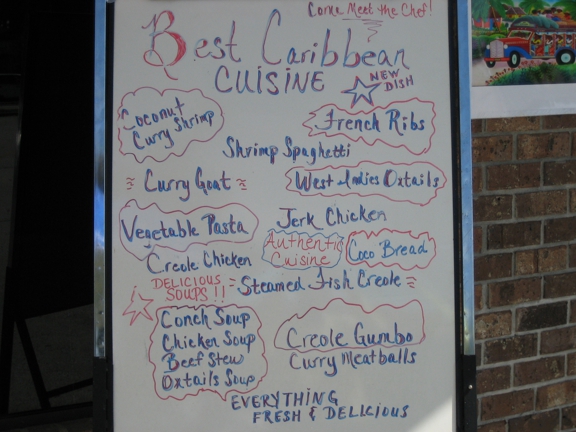 Come Meet the Chef!
Best Caribbean
CUISINE
NEW
DISH
Coconut
Curry Shrimp
French Ribs
Shrimp Spaghetti
Curry Goat
West Indies Oxtails
Vegetable Pasta
Jerk Chicken
Authentic
Cuisine
Coco Bread
Creole Chicken
DELICIOUS
SOUPS !!
Steamed Fish Creole
Conch Soup
Chicken Soup
Beef Stew
Oxtails Soup
Creole Gumbo
Curry Meatballs
EVERYTHING
FRESH & DELICIOUS